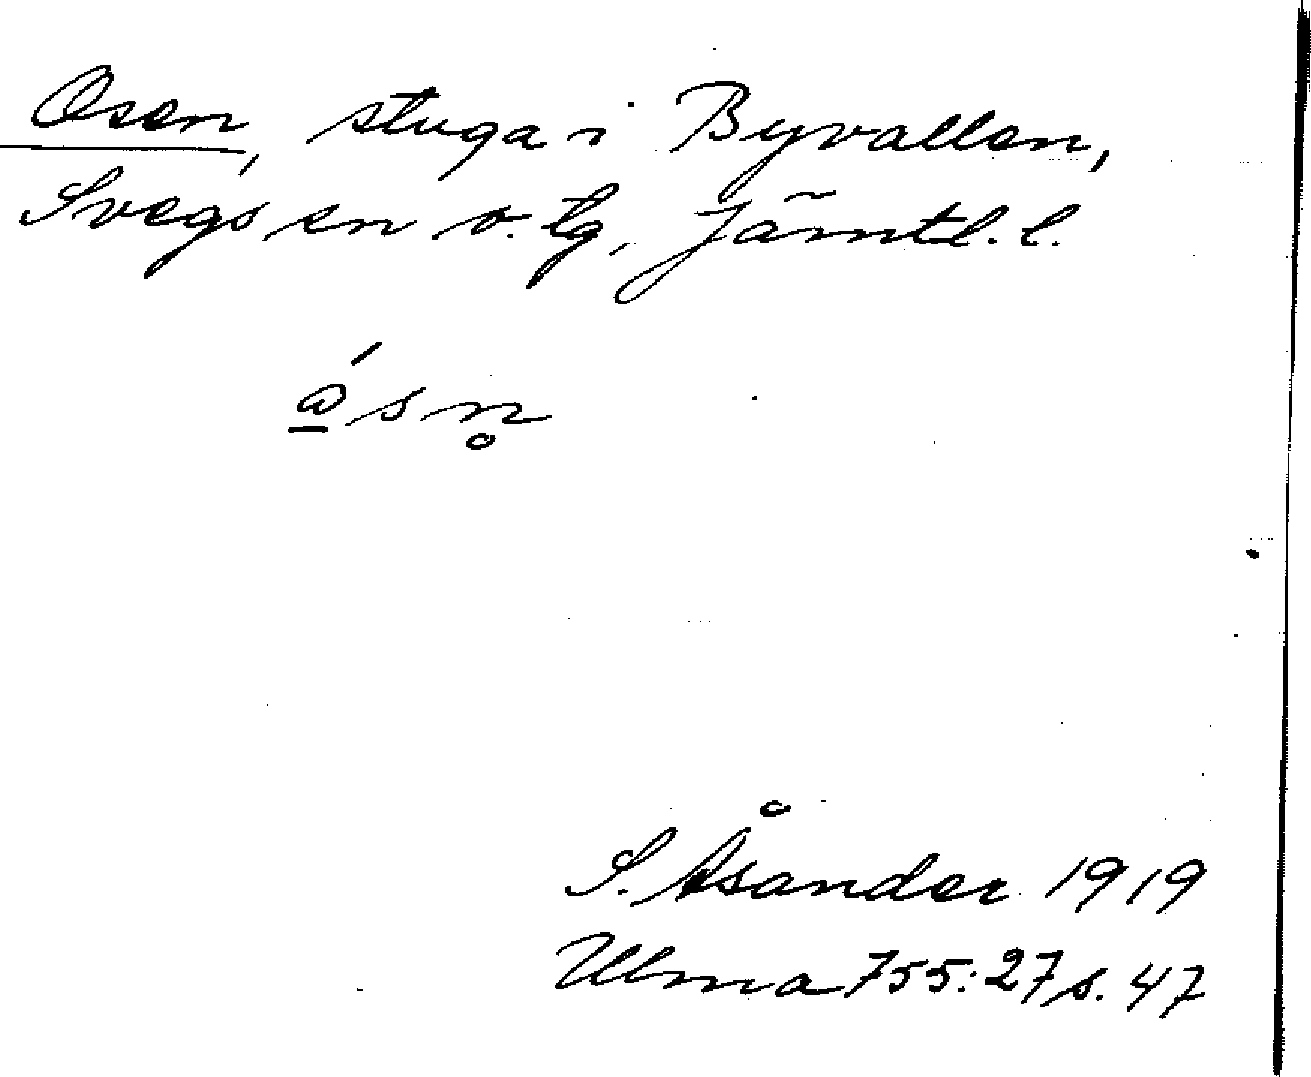 Osen, stuga i Byvallen,
Svegs sn o. tg, Jämtl. l.
ώ̲sn̥
S. Åsander 1919
Ulma 755:27 s. 47